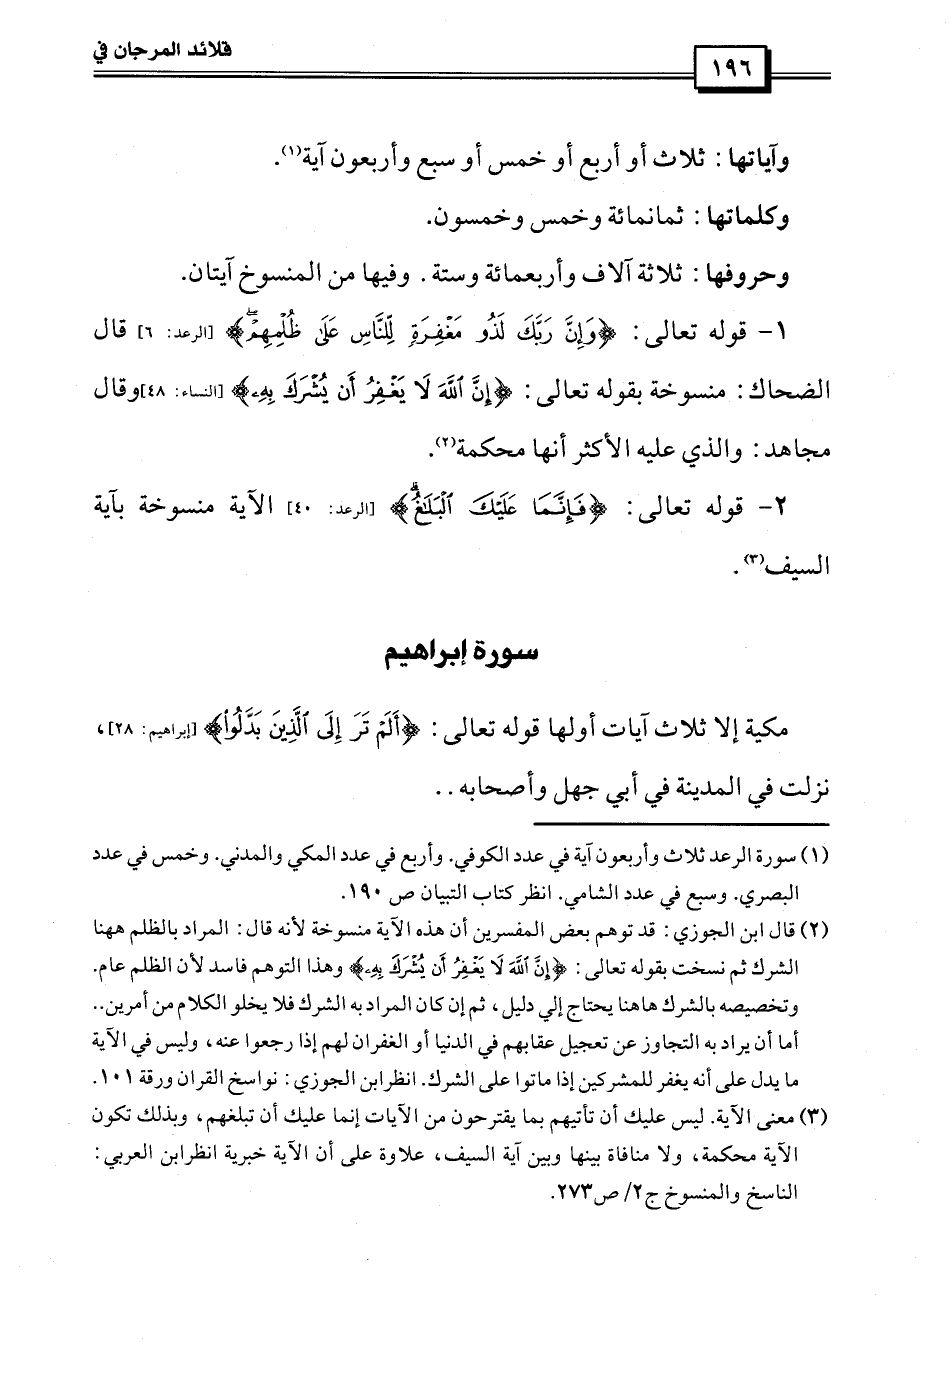 قلائد المرجان في
١٩٦
وآياتها : ثلاث أو أربع أو خمس أو سبع وأربعون آية(١).
وكلماتها : ثمانمائة وخمس وخمسون.
وحروفها : ثلاثة آلاف وأربعمائة وستة . وفيها من المنسوخ آيتان.
١- قوله تعالى: ﴿وَإِنَّ رَبَّكَ لَذُو مَغْفِرَةٍ لِّلنَّاسِ عَلَىٰ ظُلْمِهِمْ ۖ﴾ [الرعد: ٦] قال
الضحاك: منسوخة بقوله تعالى: ﴿إِنَّ ٱللَّهَ لَا يَغْفِرُ أَن يُشْرَكَ بِهِۦ﴾ [النساء: ٤٨] وقال
مجاهد: والذي عليه الأكثر أنها محكمة(٢).
٢- قوله تعالى: ﴿فَإِنَّمَا عَلَيْكَ ٱلْبَلَٰغُ ۗ﴾ [الرعد: ٤٠] الآية منسوخة بآية
السيف(٣).
سورة إبراهيم
مكية إلا ثلاث آيات أولها قوله تعالى: ﴿أَلَمْ تَرَ إِلَى ٱلَّذِينَ بَدَّلُوا۟﴾ [إبراهيم: ٢٨]،
نزلت في المدينة في أبي جهل وأصحابه ..
(١) سورة الرعد ثلاث وأربعون آية في عدد الكوفي. وأربع في عدد المكي والمدني. وخمس في عدد
البصري. وسبع في عدد الشامي. انظر كتاب التبيان ص ١٩٠.
(٢) قال ابن الجوزي: قد توهم بعض المفسرين أن هذه الآية منسوخة لأنه قال: المراد بالظلم ههنا
الشرك ثم نسخت بقوله تعالى: ﴿إِنَّ ٱللَّهَ لَا يَغْفِرُ أَن يُشْرَكَ بِهِۦ﴾ وهذا التوهم فاسد لأن الظلم عام.
وتخصيصه بالشرك هاهنا يحتاج إلي دليل، ثم إن كان المراد به الشرك فلا يخلو الكلام من أمرين..
أما أن يراد به التجاوز عن تعجيل عقابهم في الدنيا أو الغفران لهم إذا رجعوا عنه، وليس في الآية
ما يدل على أنه يغفر للمشركين إذا ماتوا على الشرك. انظر ابن الجوزي: نواسخ القران ورقة ١٠١.
(٣) معنى الآية. ليس عليك أن تأتيهم بما يقترحون من الآيات إنما عليك أن تبلغهم، وبذلك تكون
الآية محكمة، ولا منافاة بينها وبين آية السيف، علاوة على أن الآية خبرية انظر ابن العربي:
الناسخ والمنسوخ ج٢/ ص٢٧٣.